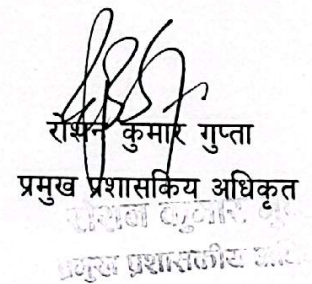 रोशन कुमार गुप्ता
प्रमुख प्रशासकिय अधिकृत
रोशन कुमार
प्रमुख प्रशासकीय